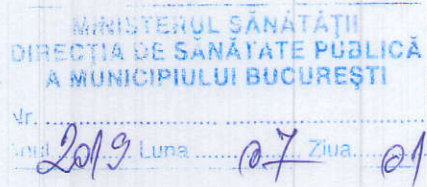 MINISTERUL SĂNĂTĂȚII
DIRECȚIA DE SĂNĂTATE PUBLICĂ
A MUNICIPIULUI BUCUREȘTI
Nr. ........................
Anul 2019 Luna ........ 07 Ziua ..... 01